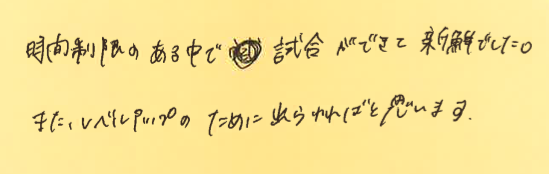 時間制限のある中で 試合ができて 新鮮でした。
また、レベルアップの ために 出られればと思います。